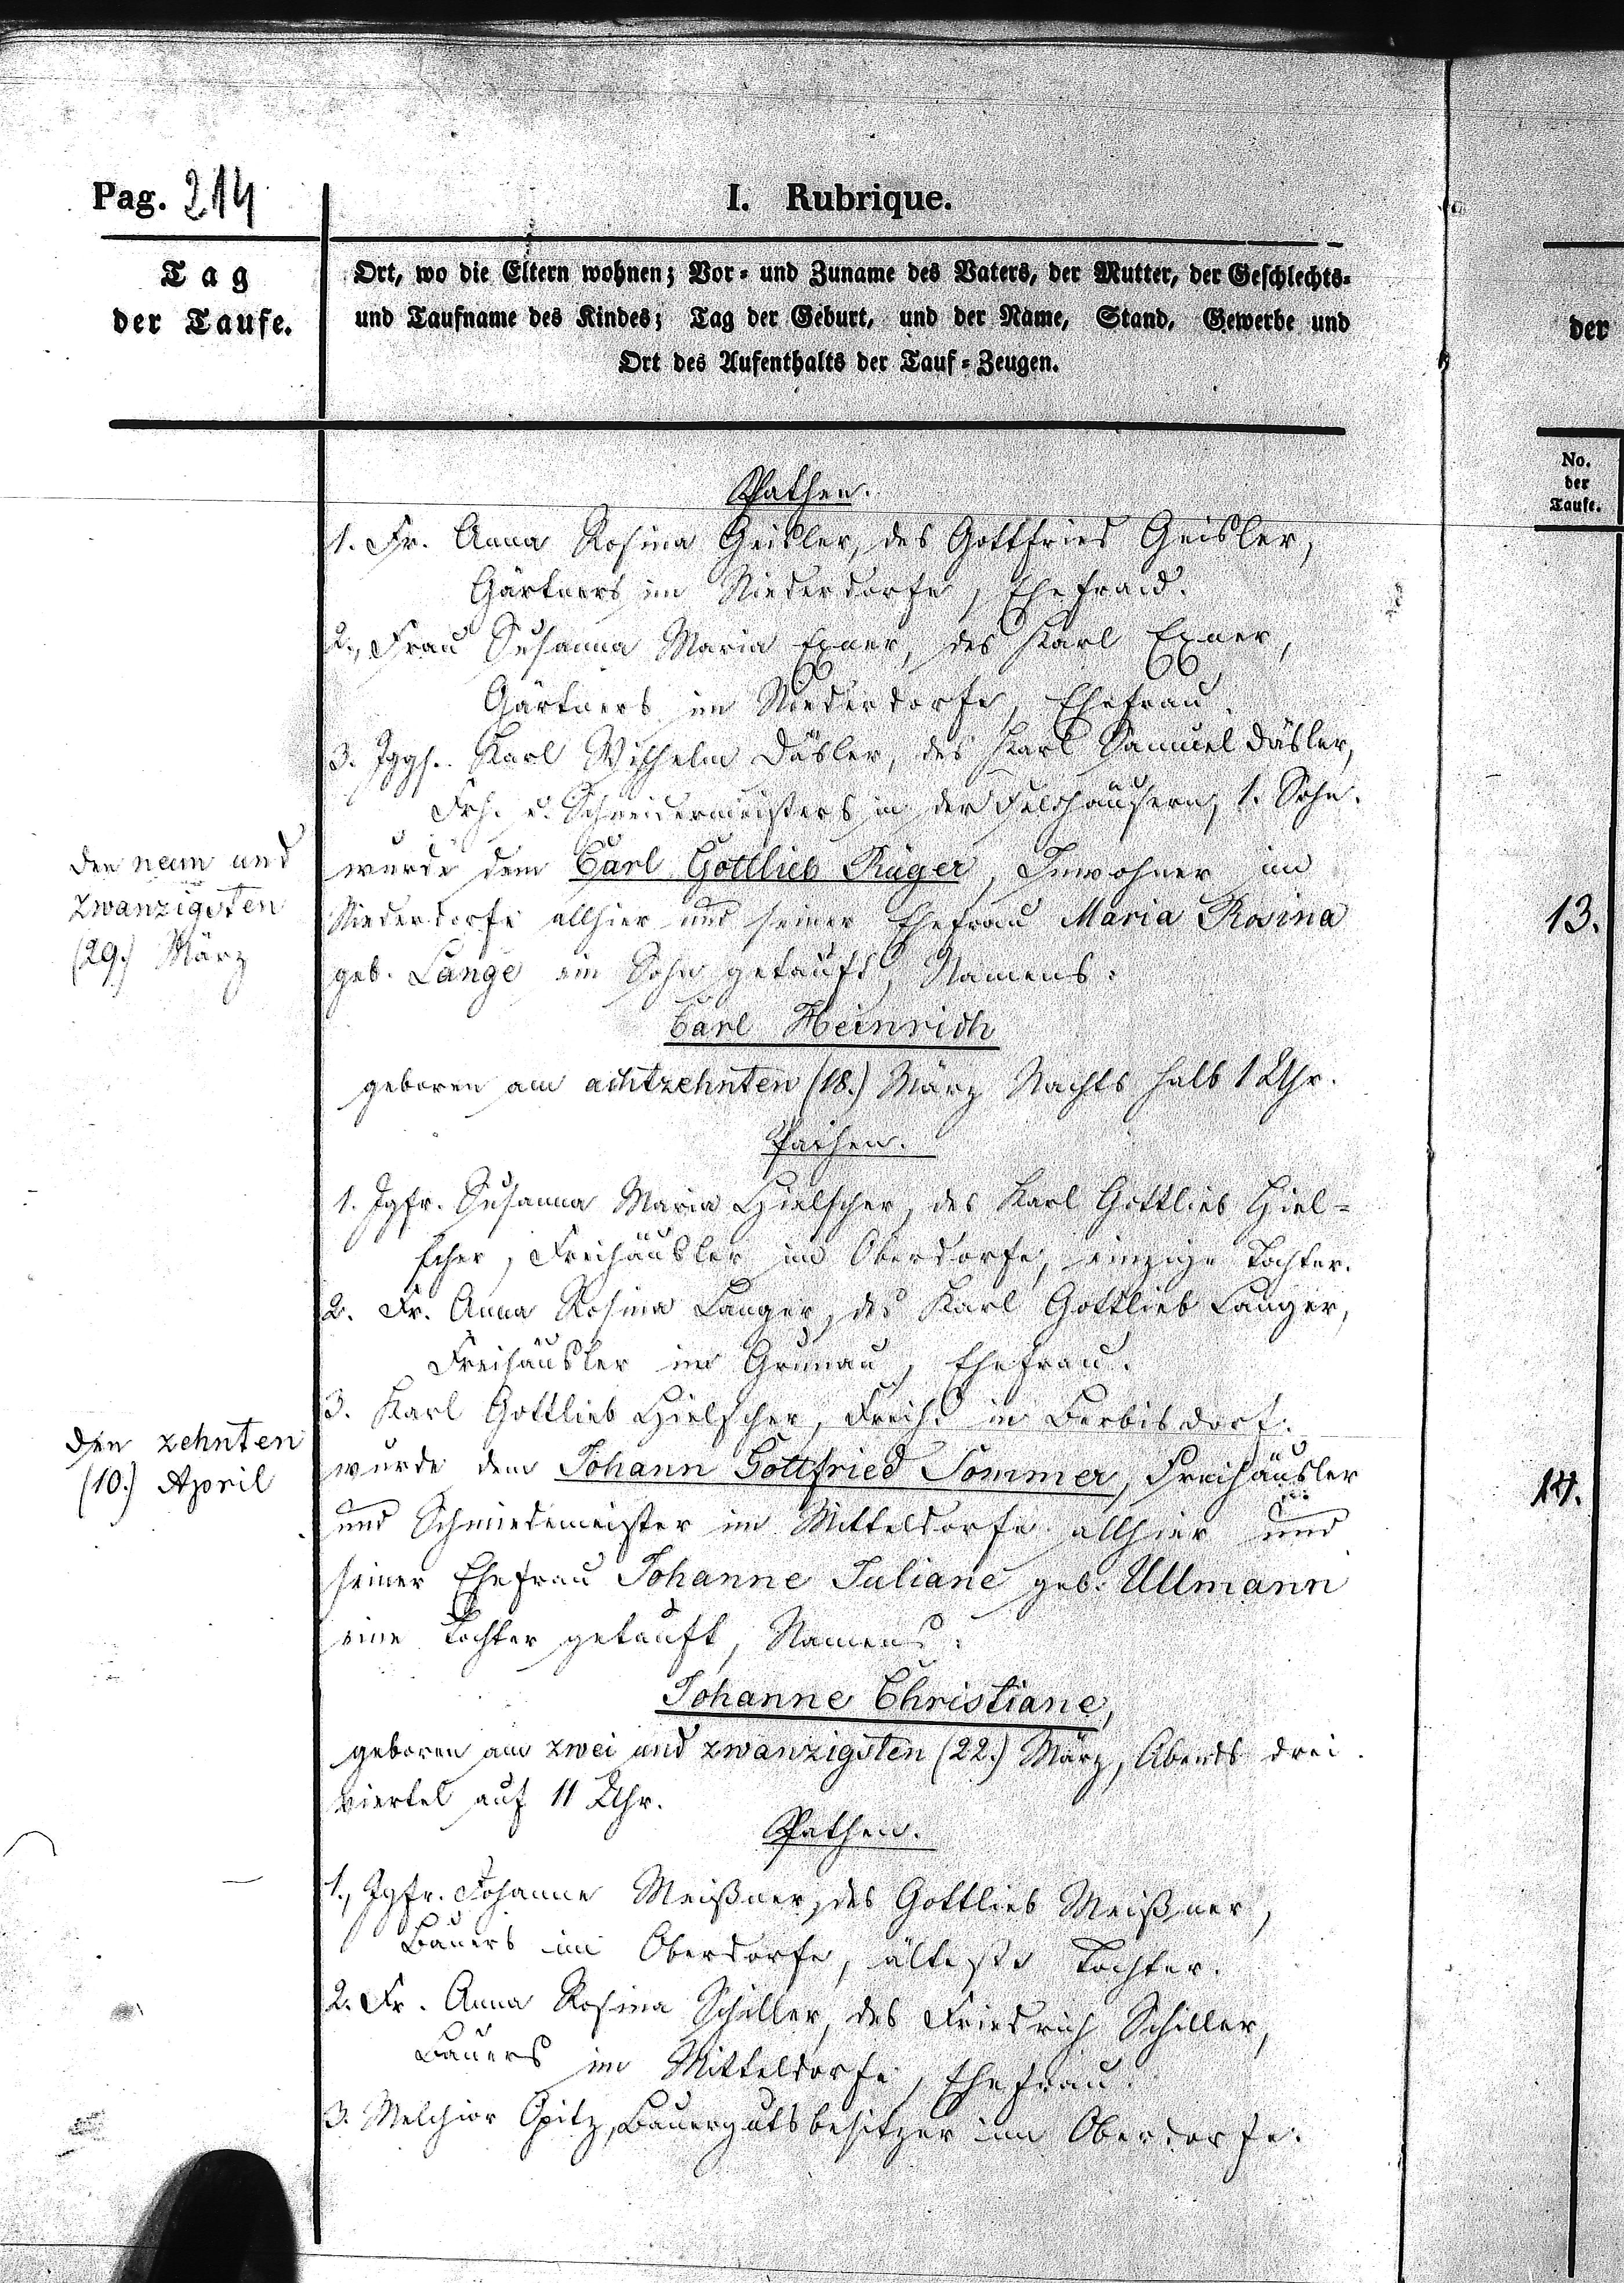 Pag. 214
I. Rubrique.
Tag
der Taufe.
Ort, wo die Eltern wohnen; Vor- und Zuname des Vaters, der Mutter, der Geschlechts-
und Taufname des Kindes; Tag der Geburt, und der Name, Stand, Gewerbe und
Ort des Aufenthalts der Tauf-Zeugen.
der
No.
der
Taufe.
Pathen.
1. Fr. Anna Rosina Geisler, des Gottfried Geisler,
Gärtners im Niederdorfe, Ehefrau.
2., Frau Susanna Maria Exner, des Karl Exner,
Gärtners im Niederdorfe, Ehefrau.
3. Jggs. Karl Wilhelm Däsler, des Karl Samuel Däsler,
Frh. u. Schneidermeisters in der Feldhäusern, 1. Sohn.
den neun und
zwanzigsten
(29.) März
wurde dem Carl Gottlieb Rüger, Inwohner im
Niederdorfe allhier und seiner Ehefrau Maria Rosina
geb. Lange ein Sohn getauft, Namens:
13.
Carl Heinrich
geboren am achtzehnten (18.) März Nachts halb 1 Uhr.
Pathen.
1. Jgfr. Susanna Maria Hielscher, des Karl Gottlieb Hiel-
scher, Freihäusler im Oberdorfe, einzige Tochter.
2. Fr. Anna Rosina Langer, des Karl Gottlieb Langer,
Freihäusler in Grunau, Ehefrau.
3. Karl Gottlieb Hielscher, Freih. in Berbisdorf.
den zehnten
(10.) April
wurde dem Johann Gottfried Sommer, Freihäusler
und Schmiedemeister im Mitteldorfe allhier und
seiner Ehefrau Johanne Juliane geb. Ullmann
eine Tochter getauft, Namens:
14.
Johanne Christiane,
geboren am zwei und zwanzigsten (22.) März, Abends drei
viertel auf 11 Uhr.
Pathen.
1., Jgfr. Johanne Meißner, des Gottlieb Meißner,
Bauers im Oberdorfe, älteste Tochter.
2. Fr. Anna Rosina Schiller, des Friedrich Schiller,
Bauers im Mitteldorfe, Ehefrau.
3. Melchior Opitz, Bauergutsbesitzer im Oberdorfe.